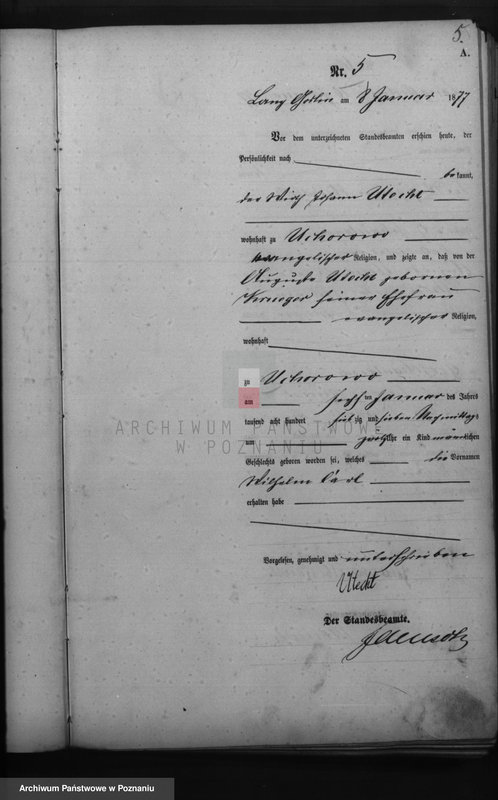 5.
A.
Nr. 5
Lang Goslin am 8 Januar 1877
Vor dem unterzeichneten Standesbeamten erschien heute, der
Persönlichkeit nach
bekannt,
der Wirth Johann Utecht
wohnhaft zu Uchorowo
evangelischer Religion, und zeigte an, daß von der
Auguste Utecht gebornen
Krueger seiner Ehefrau
evangelischer Religion,
wohnhaft
zu Uchorowo
am Januar des Jahres
tausend acht hundert siebzig und sieben Nachmittags
um Uhr ein Kind männlichen
Geschlechts geboren worden sei, welches die Vornamen
Wilhelm Carl
erhalten habe
Vorgelesen, genehmigt und unterschrieben
Utecht
Der Standesbeamte.
ARCHIWUM PAŃSTWOWE
W POZNANIU
Archiwum Państwowe w Poznaniu